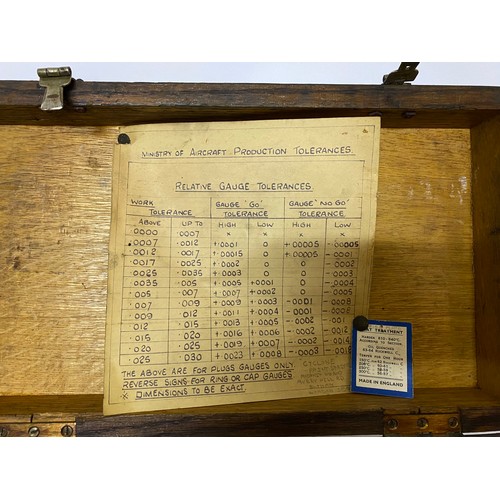 MINISTRY OF AIRCRAFT PRODUCTION TOLERANCES.
RELATIVE GAUGE TOLERANCES.
WORK TOLERANCE GAUGE 'GO' TOLERANCE GAUGE 'NO GO' TOLERANCE
ABOVE UP TO HIGH LOW HIGH LOW
.0000 .0007 x x x x
.0007 .0012 +.0001 0 +.00005 -.00005
.0012 .0017 +.00015 0 +.00005 -.0001
.0017 .0025 +.0002 0 0 -.0002
.0025 .0035 +.0003 0 0 -.0003
.0035 .005 +.0005 +.0001 0 -.0004
.005 .007 +.0007 +.0002 0
.007 .009 +.0009 +.0003 -.0001 -.0008
.009 .012 +.0011 +.0004 -.0001
.012 .015 +.0013 +.0005 -.0002
.015 .020 +.0016 +.0006 -.0002
.020 .025 +.0019 +.0007 -.0002
.025 .030 +.0023 +.0008 -.0003
THE ABOVE ARE FOR PLUGS GAUGES ONLY
REVERSE SIGNS FOR RING OR CAP GAUGES
x DIMENSIONS TO BE EXACT.
TREATMENT
MADE IN ENGLAND